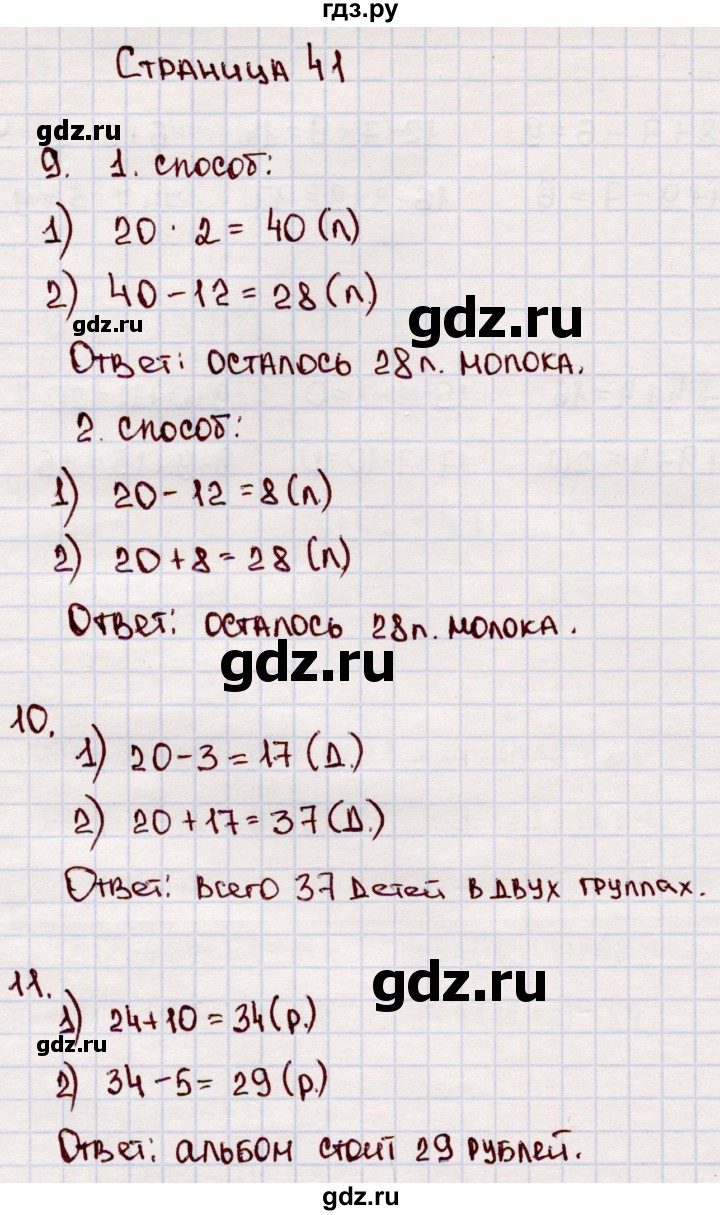 гдз.ру
Страница 41
gdz.ru
9. 1. способ:
1) 20 · 2 = 40 (л)
2) 40 - 12 = 28 (л.)
gdz.ru
gdz.ru
Ответ: осталось 28 л. молока.
2. способ:
1) 20 - 12 = 8 (л)
2) 20 + 8 = 28 (л)
Ответ: осталось 28 л. молока.
gdz.ru
10.
1) 20 - 3 = 17 (д.)
2) 20 + 17 = 37 (д.)
Ответ: всего 37 детей в двух группах.
gdz.ru
11.
1) 24 + 10 = 34 (р.)
gdz.ru
2) 34 - 5 = 29 (р.)
Ответ: альбом стоит 29 рублей.
gdz.ru